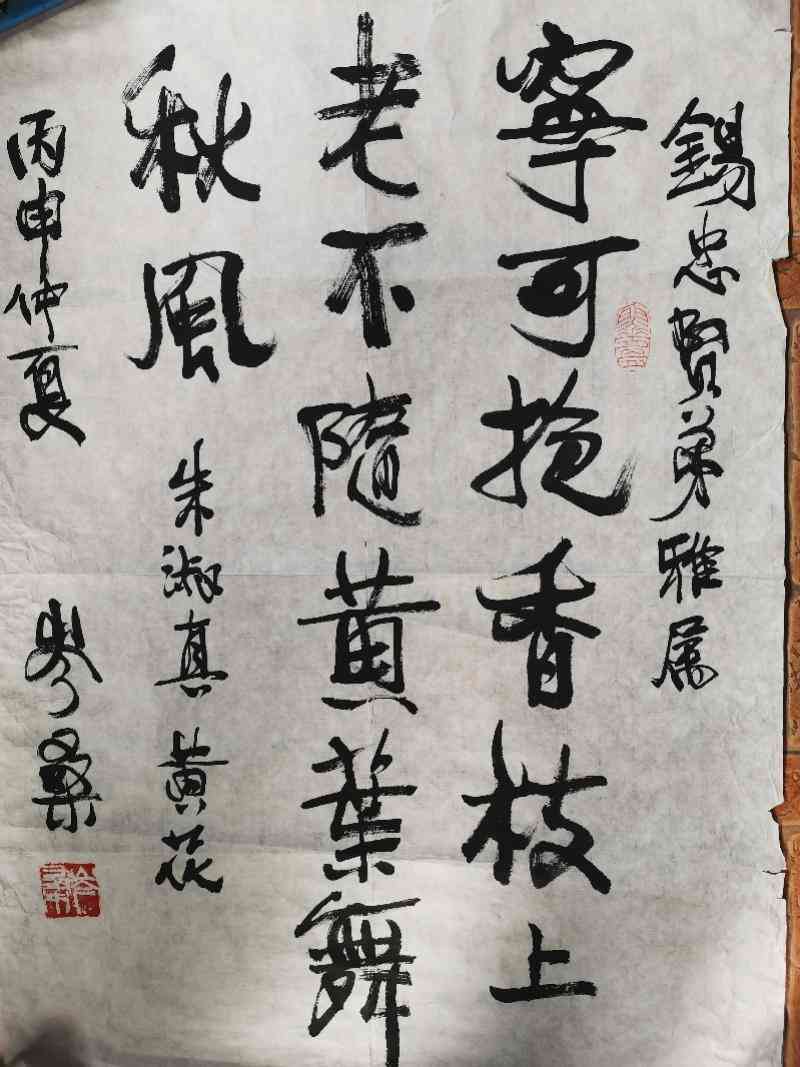 錫忠賢弟雅属
寧可抱香枝上
老不隨黄葉舞
秋風
朱淑真黄花
丙申仲夏
岑桑